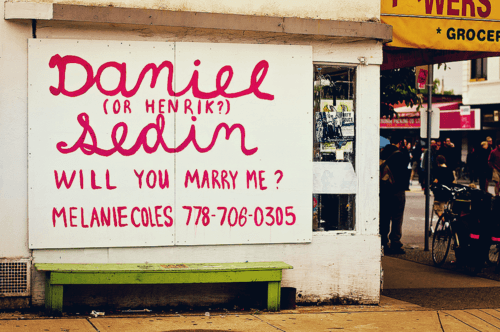 Daniel
(OR HENRIK?)
Sedin
WILL YOU MARRY ME?
MELANIE COLES 778-706-0305
WERS
* GROCER